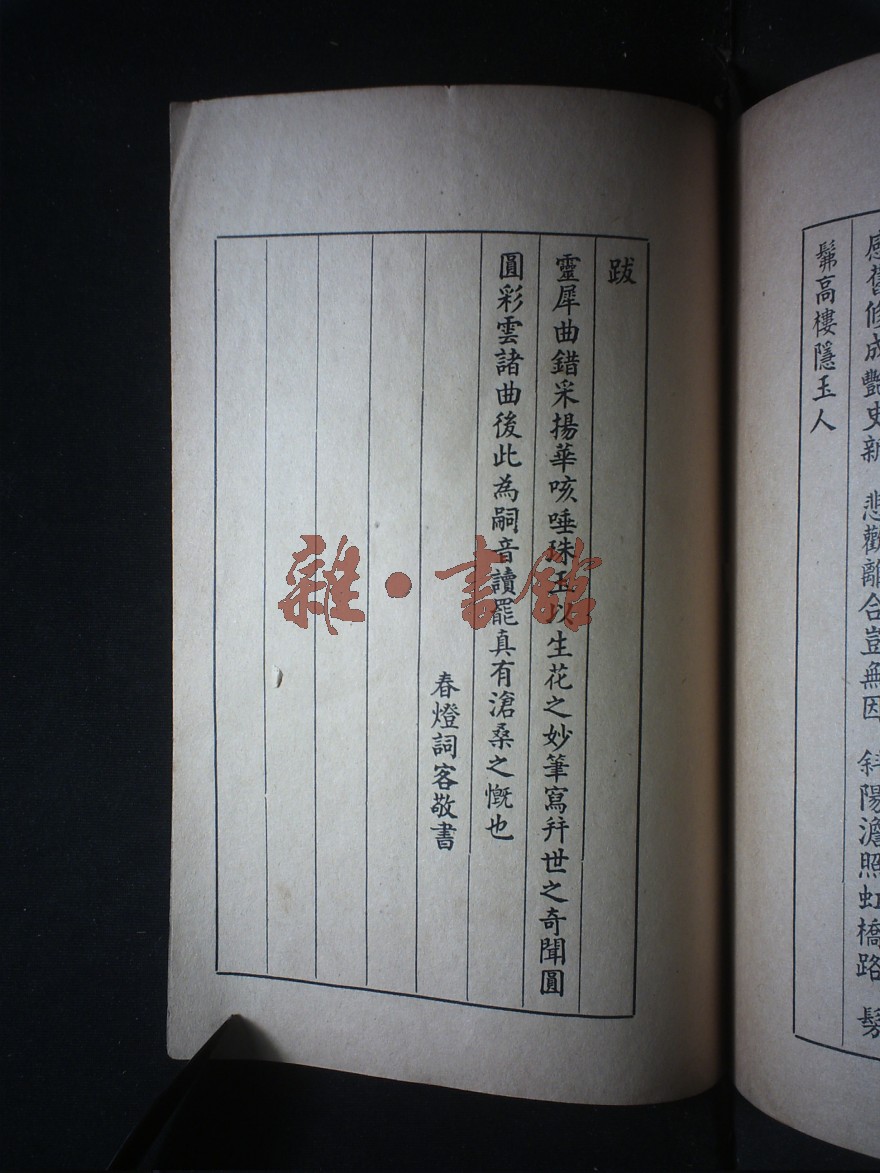 感舊修成艷史新　悲歡離合豈無因　斜陽澹照虹橋路　髣
髴高樓隱玉人
跋
靈犀曲錯采揚華咳唾珠玉以生花之妙筆寫并世之奇聞圓
圓彩雲諸曲後此為嗣音讀罷真有滄桑之慨也
春燈詞客敬書
雜·書館